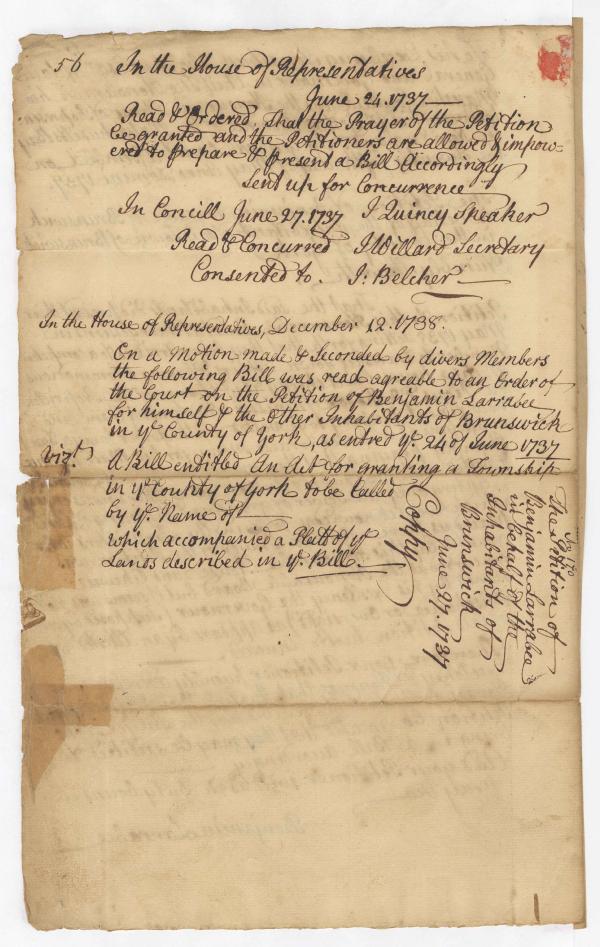 56 In the House of Representatives
June 24. 1737
Read & Ordered, That the Prayer of the Petition
be granted and the Petitioners are allowed & impow-
ered to prepare & present a Bill Accordingly
Sent up for Concurrence
In Concill June 27. 1737 J Quincy Speaker
Read & Concurred J Willard Secretary
Consented to. J: Belcher
In the House of Representatives, December 12. 1738.
On a Motion made & Seconded by divers Members
the following Bill was read agreable to an Order of
the Court on the Petition of Benjamin Larrabee
for himself & the Other Inhabitants of Brunswick
in ye County of York, as entred ye 24 of June 1737
Vizt. A Bill entitled An Act for granting a Township
in ye County of York to be Called
by ye Name of
which accompanied a Platt of ye
Lands described in ye Bill.
The Petition of
Benjamin Larrabee
in behalf of the
Inhabitants of
Brunswick
June 27. 1737
Coppy